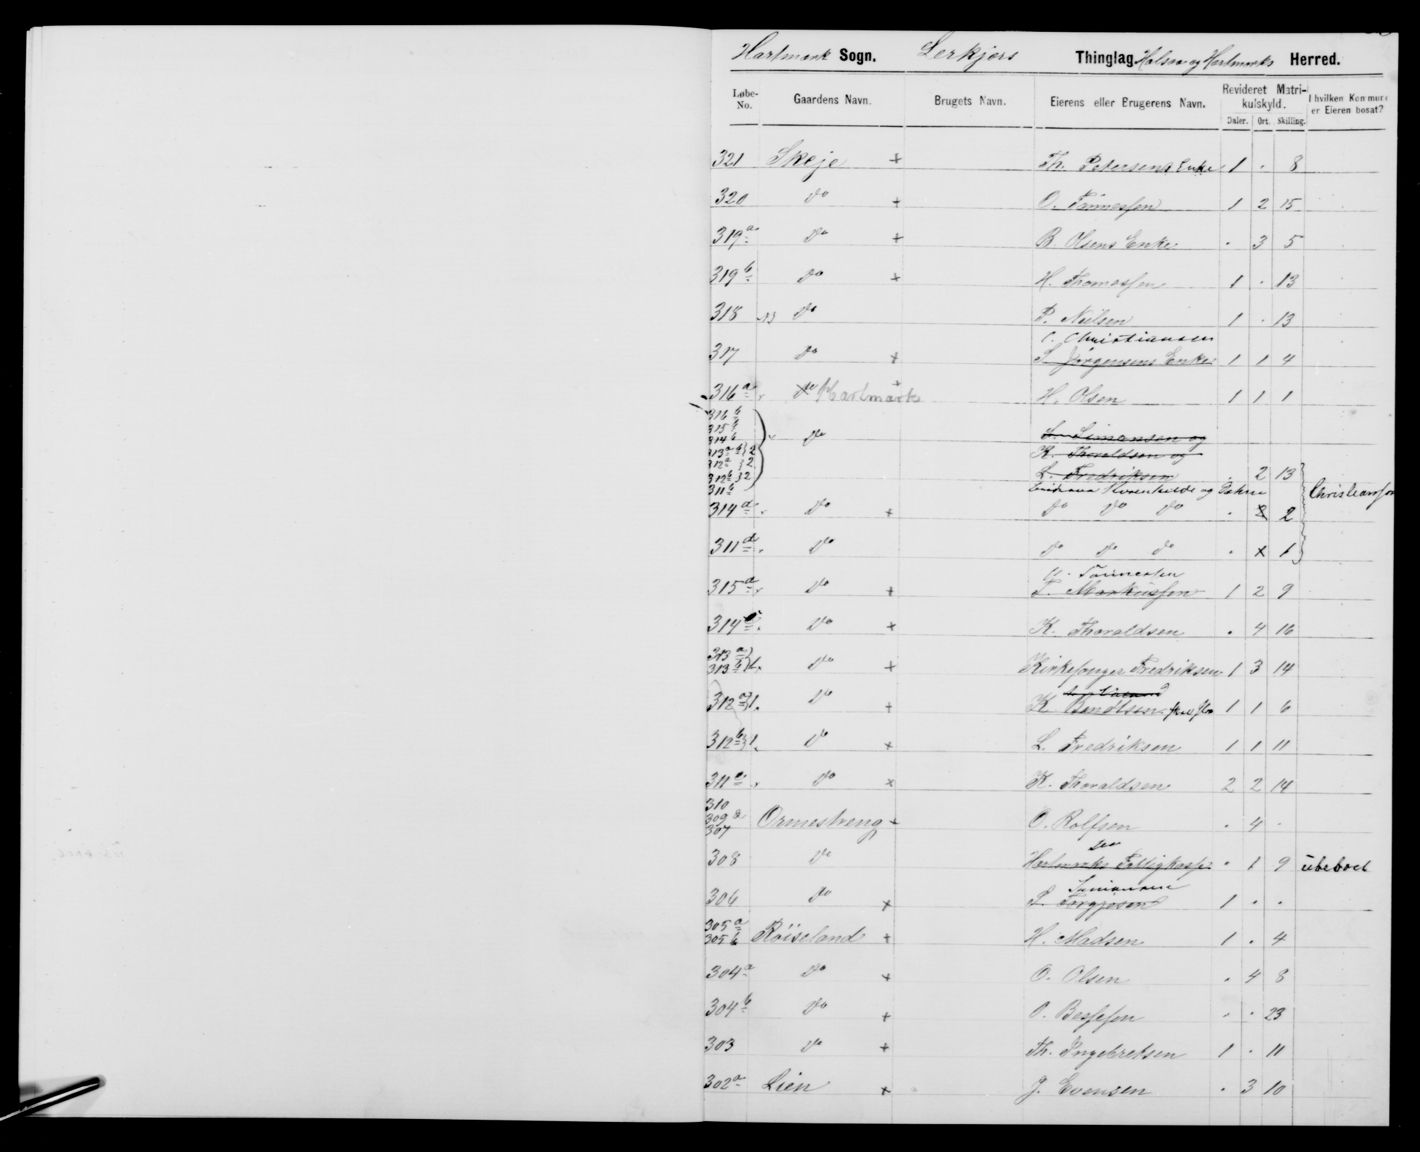 Hartmark Sogn. Lerkjers Thinglag Halsaa og Hartmarks Herred.
Løbe-No. Gaardens Navn. Brugets Navn. Eierens eller Brugerens Navn. Revideret Matrikulskyld. Daler. Ort. Skilling. I hvilken Kommune er Eieren bosat?
321 Skeje + Th. Petersens Enke 1 . 8
320 do + O. Tønnessen 1 2 15
319 a do + B. Olsens Enke . 3 5
319 b do + H. Thomassen 1 . 13
318 do P. Nielsen 1 . 13
Christiansen
317 do + S. Jørgensens Enke 1 1 4
316 a do Hartmark + H. Olsen 1 1 1
316 b
315 b
314 b do L. Simonsen og
313 a b } 2 K. Thoraldsen og
312 a } 2
312 b } 2 L. Fredriksen . 2 13
311 b
314 d do + do do do . 2 Christiansson
311 d do do do do . x 1
Tønnessen
315 a do + T. Markussen 1 2 9
314 do + K. Thoraldsen . 4 16
313 a
313 b } 1 do + Kirkesanger Fredriksen 1 3 14
312 a } 1 do + K. Bendtsen 1 1 6
312 b } 1 do + L. Fredriksen 1 1 11
311 a do x K. Thoraldsen 2 2 14
310
309 a Ormestreng + O. Rolfsen . 4 .
307
308 do Hartmarks Fattigkasse . 1 9 ubeboet
Simonsen
306 do x Torgjusen 1 . .
305 a
305 b Røiseland + H. Madsen 1 . 4
304 a do + O. Olsen . 4 8
304 b do + O. Bessesen . . 23
303 do + Th. Ingebretsen 1 . 11
302 a Lien x J. Evensen . 3 10